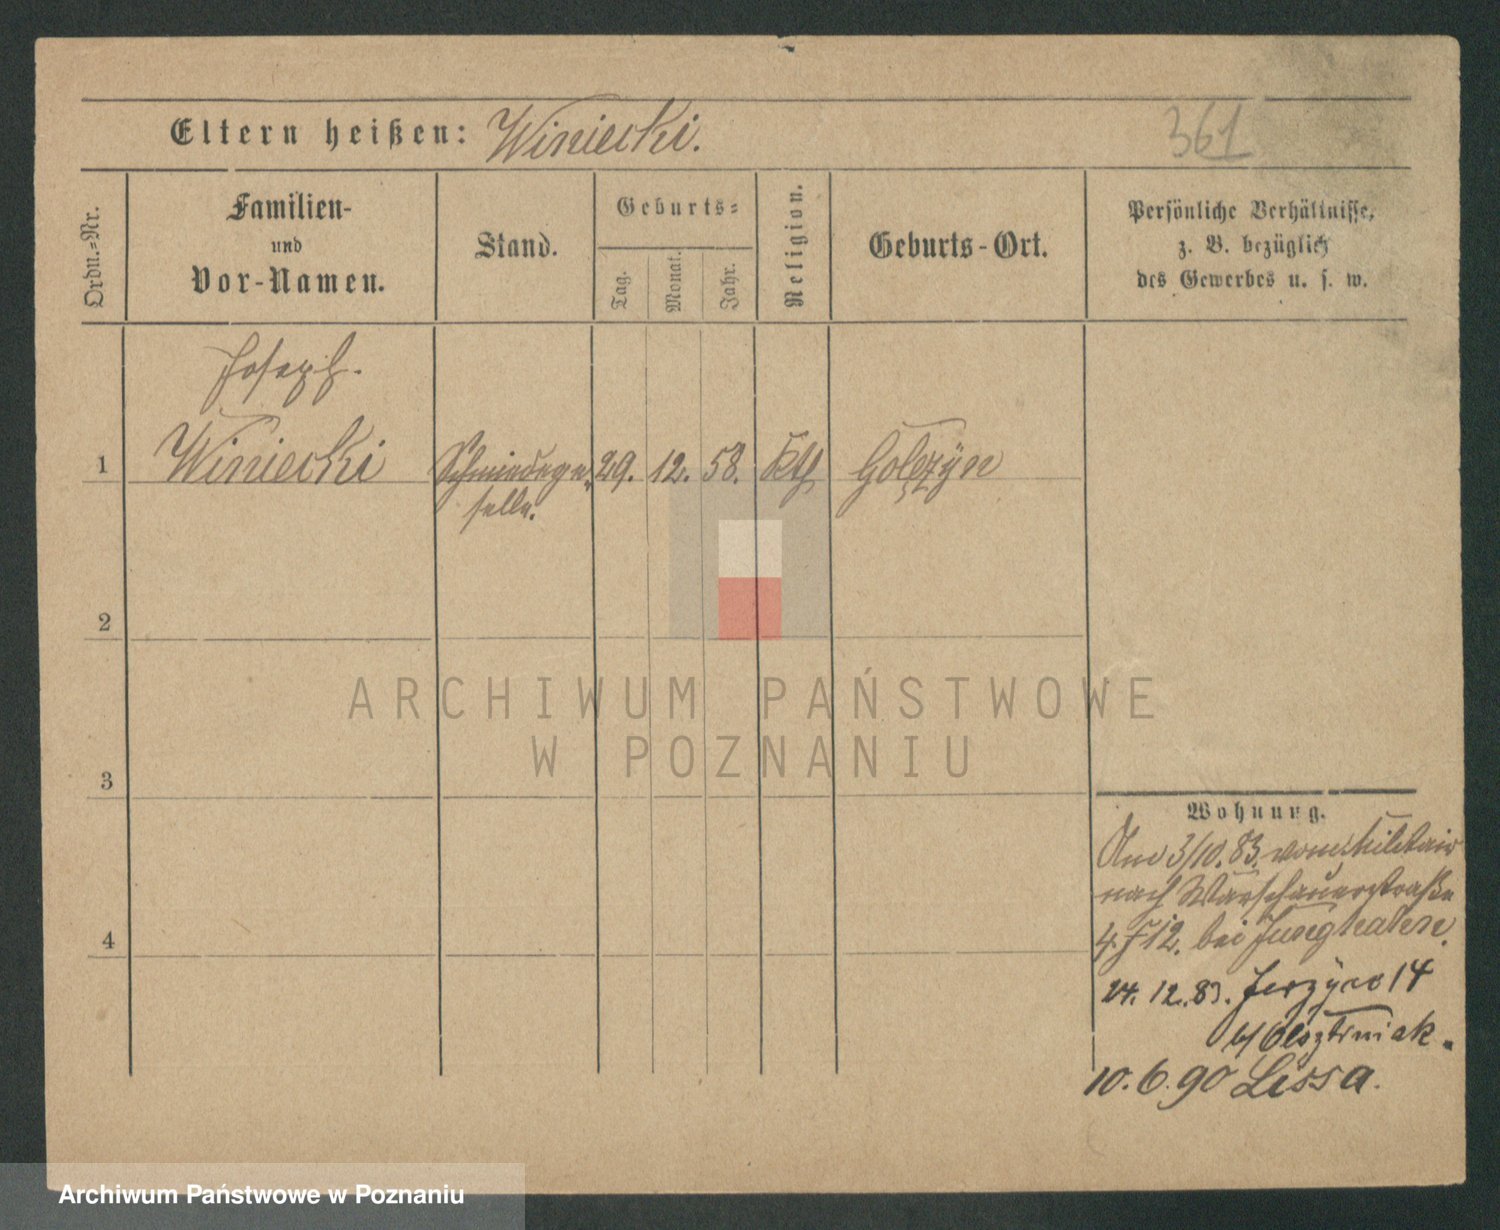 361
Eltern heißen: Winiecki.
Ordn.=Nr.
Familien- und Vor-Namen.
Stand.
Geburts=
Tag.
Monat.
Jahr.
Religion.
Geburts-Ort.
Persönliche Verhältnisse,
z. B. bezüglich
des Gewerbes u. s. w.
Joseph.
1 Winiecki Schmiedege= 29. 12. 58. Kth
selle.
2
3
4
Wohnung.
Am 3/10. 83. vom Militair
nach Warschauerstraße
4. F 12. bei
24. 12. 83. Jerzyce 14
b/
10. 6. 90 Lissa.
ARCHIWUM PAŃSTWOWE
W POZNANIU
Archiwum Państwowe w Poznaniu